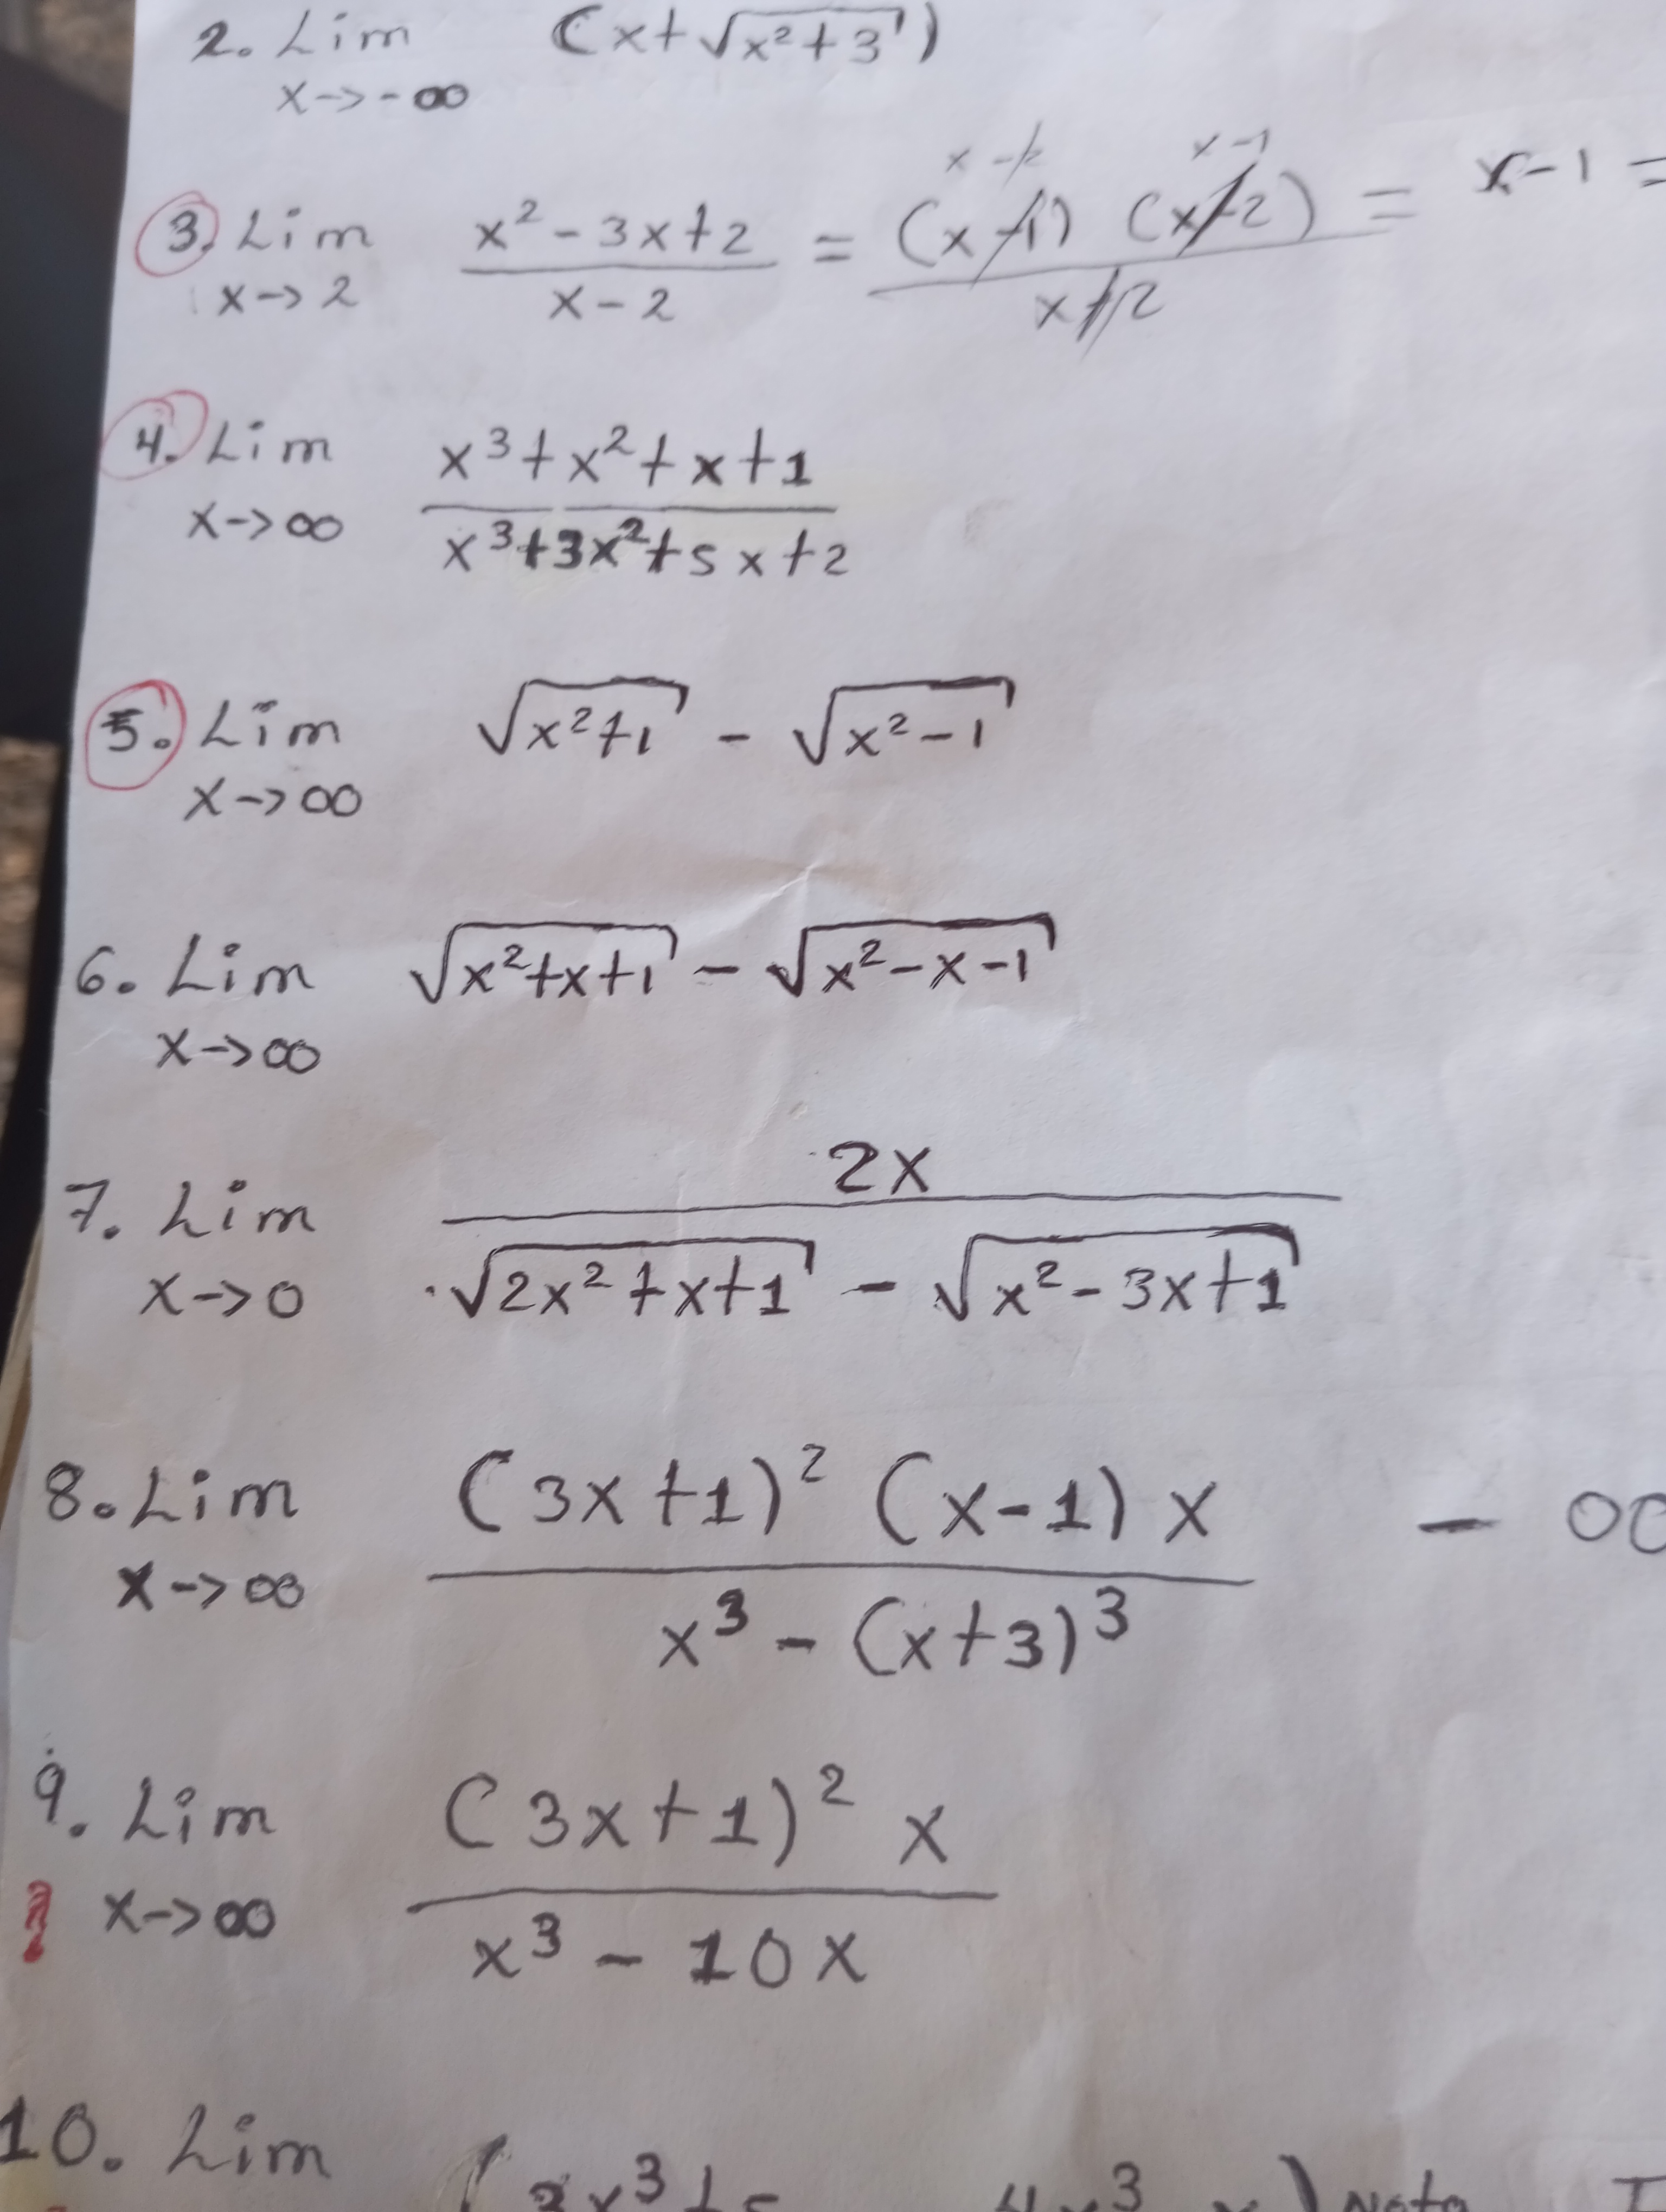 2. Lim (x+√(x²+3))
x→-∞
x-2 x-1
3. Lim x²-3x+2 = (x-1) (x-2) = x-1 =
x→2 x-2 x-2
4. Lim x³+x²+x+1
x→∞ x³+3x²+5x+2
5. Lim √(x²+1) - √(x²-1)
x→∞
6. Lim √(x²+x+1) - √(x²-x-1)
x→∞
7. Lim 2x
x→0 √(2x²+x+1) - √(x²-3x+1)
8. Lim (3x+1)² (x-1) x - ∞
x→∞ x³-(x+3)³
9. Lim (3x+1)² x
? x→∞ x³-10x
10. Lim